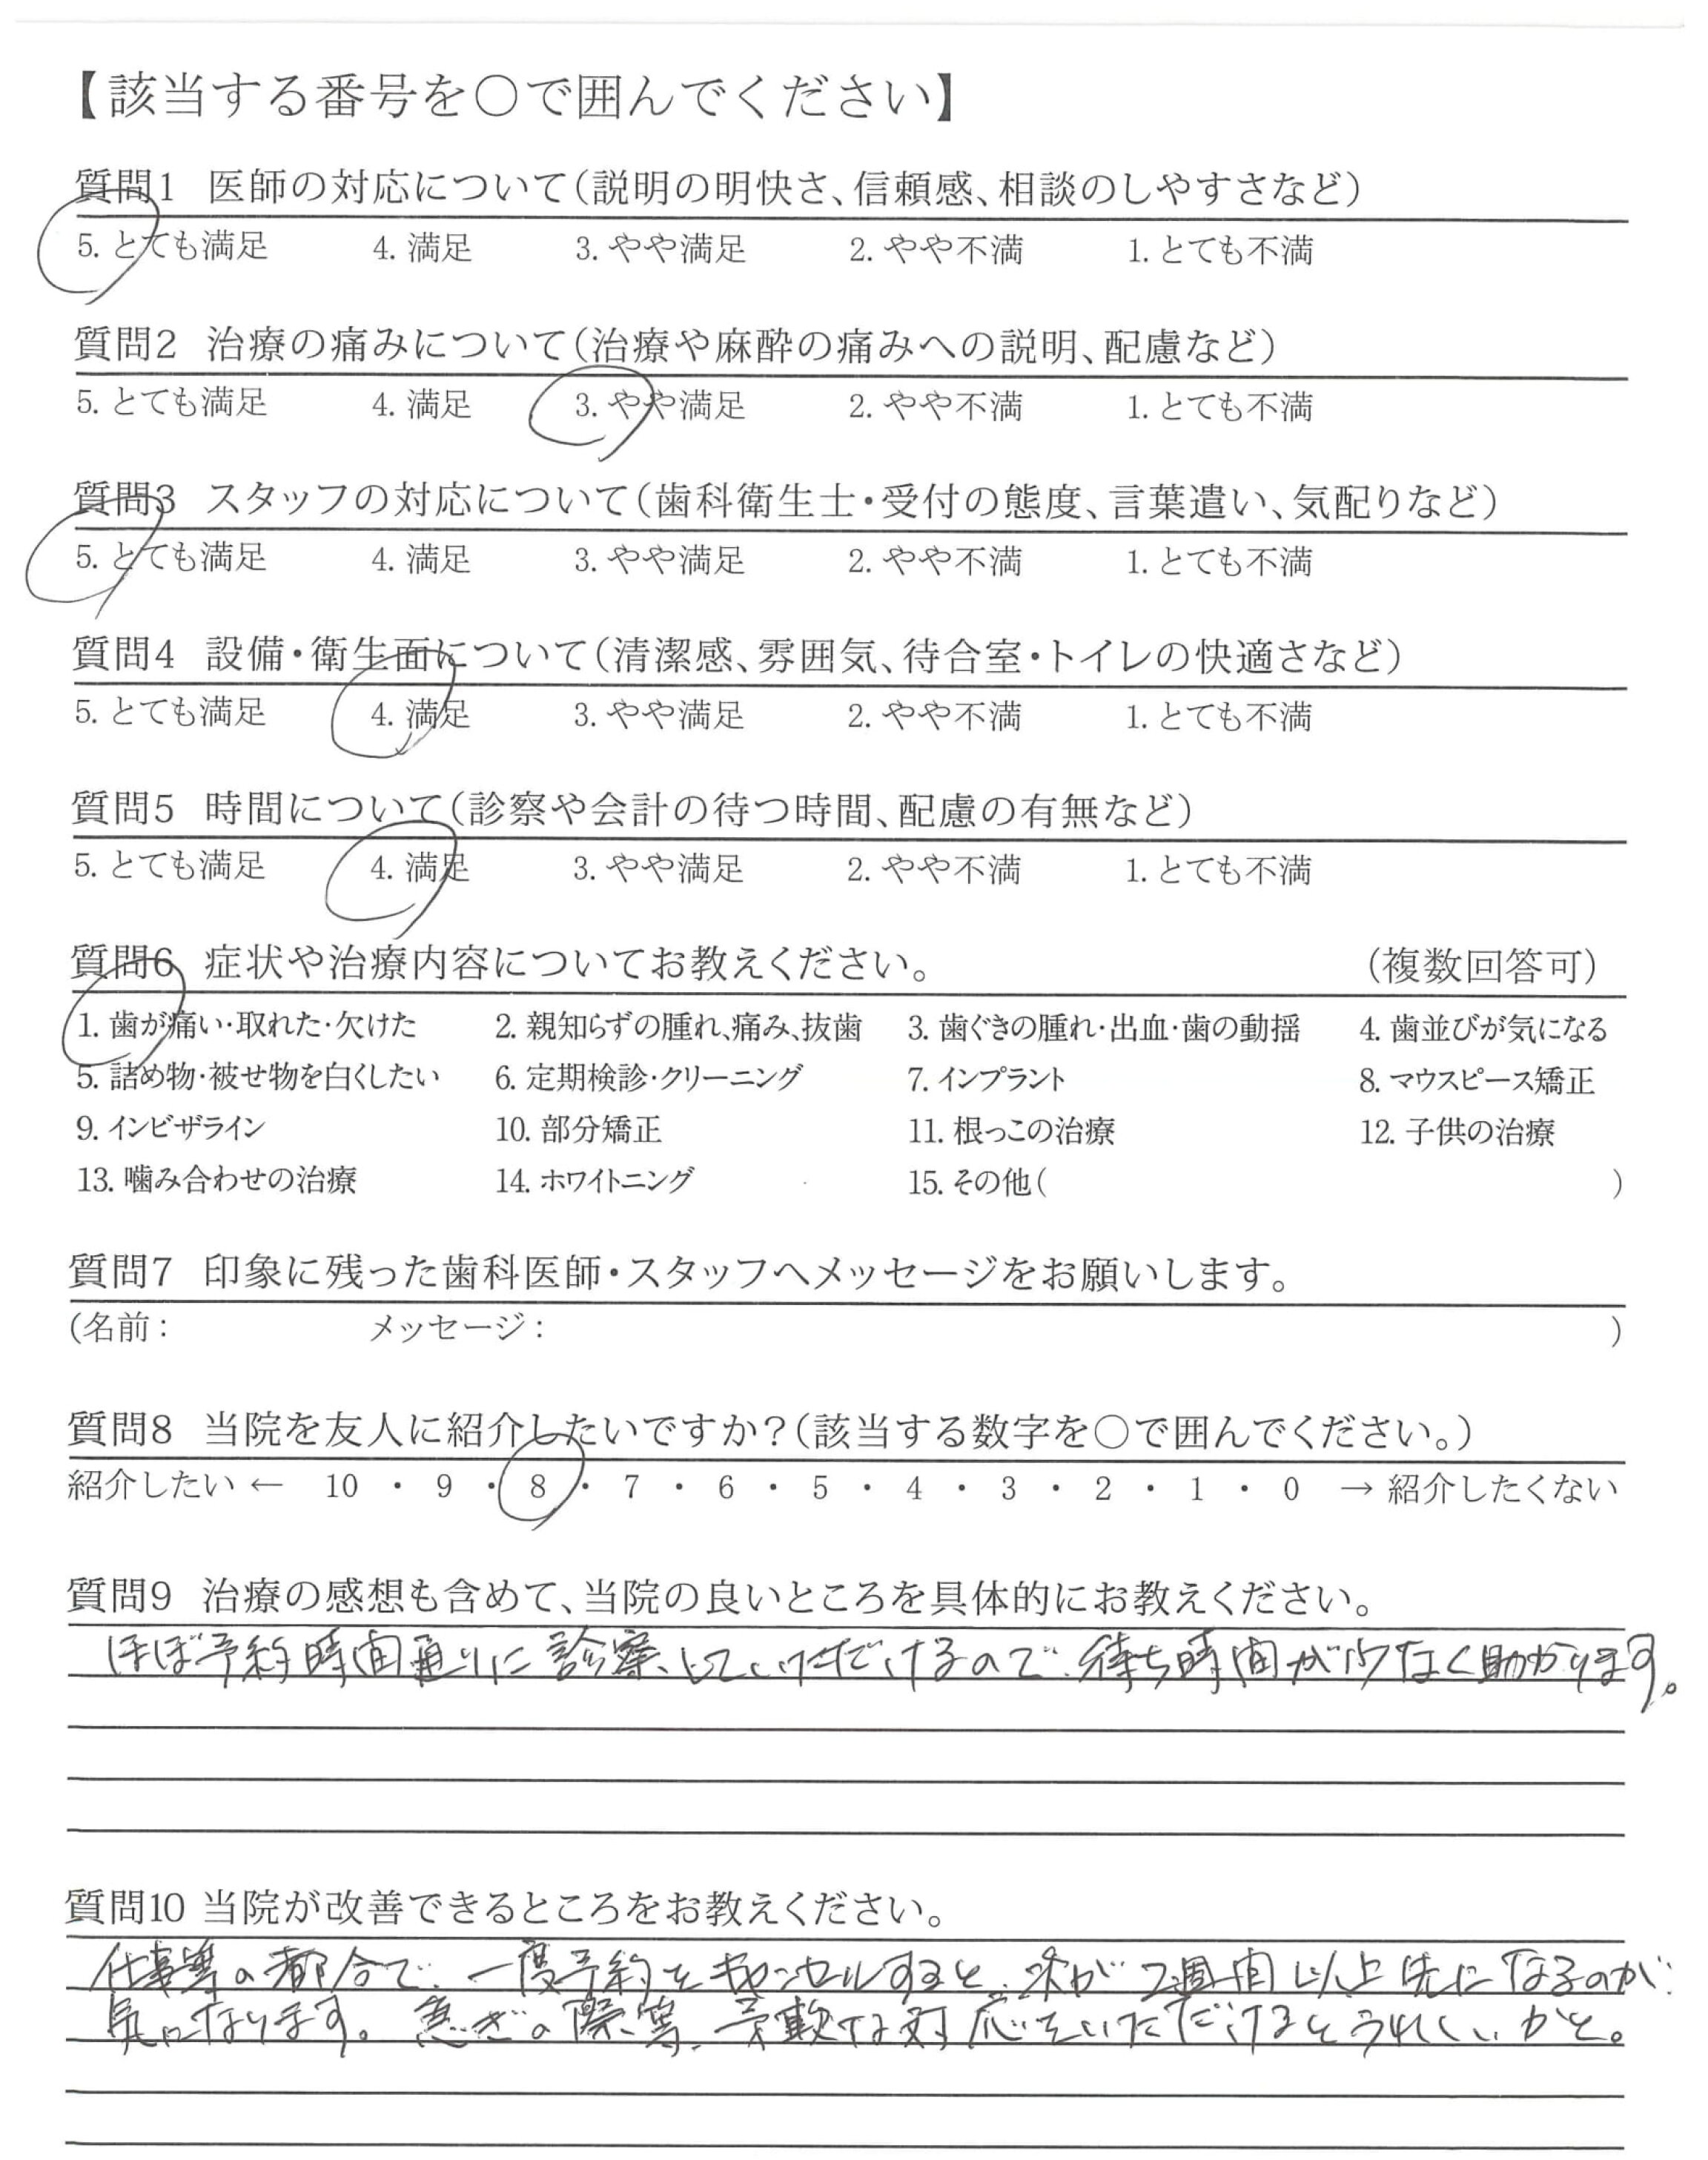 【該当する番号を○で囲んでください】
質問1 医師の対応について(説明の明快さ、信頼感、相談のしやすさなど)
5. とても満足 4. 満足 3. やや満足 2. やや不満 1. とても不満
質問2 治療の痛みについて(治療や麻酔の痛みへの説明、配慮など)
5. とても満足 4. 満足 3. やや満足 2. やや不満 1. とても不満
質問3 スタッフの対応について(歯科衛生士・受付の態度、言葉遣い、気配りなど)
5. とても満足 4. 満足 3. やや満足 2. やや不満 1. とても不満
質問4 設備・衛生面について(清潔感、雰囲気、待合室・トイレの快適さなど)
5. とても満足 4. 満足 3. やや満足 2. やや不満 1. とても不満
質問5 時間について(診察や会計の待つ時間、配慮の有無など)
5. とても満足 4. 満足 3. やや満足 2. やや不満 1. とても不満
質問6 症状や治療内容についてお教えください。 (複数回答可)
1. 歯が痛い・取れた・欠けた 2. 親知らずの腫れ、痛み、抜歯 3. 歯ぐきの腫れ・出血・歯の動揺 4. 歯並びが気になる
5. 詰め物・被せ物を白くしたい 6. 定期検診・クリーニング 7. インプラント 8. マウスピース矯正
9. インビザライン 10. 部分矯正 11. 根っこの治療 12. 子供の治療
13. 噛み合わせの治療 14. ホワイトニング 15. その他( )
質問7 印象に残った歯科医師・スタッフへメッセージをお願いします。
(名前: メッセージ: )
質問8 当院を友人に紹介したいですか?(該当する数字を○で囲んでください。)
紹介したい ← 10 ・ 9 ・ 8 ・ 7 ・ 6 ・ 5 ・ 4 ・ 3 ・ 2 ・ 1 ・ 0 → 紹介したくない
質問9 治療の感想も含めて、当院の良いところを具体的にお教えください。
ほぼ予約時間通りに診察していただけるので、待ち時間が少なく助かります。
質問10 当院が改善できるところをお教えください。
仕事等の都合で、一度予約をキャンセルすると、次が2週間以上先になるのが
気になります。急ぎの際等、柔軟な対応をいただけるとうれしいかと。